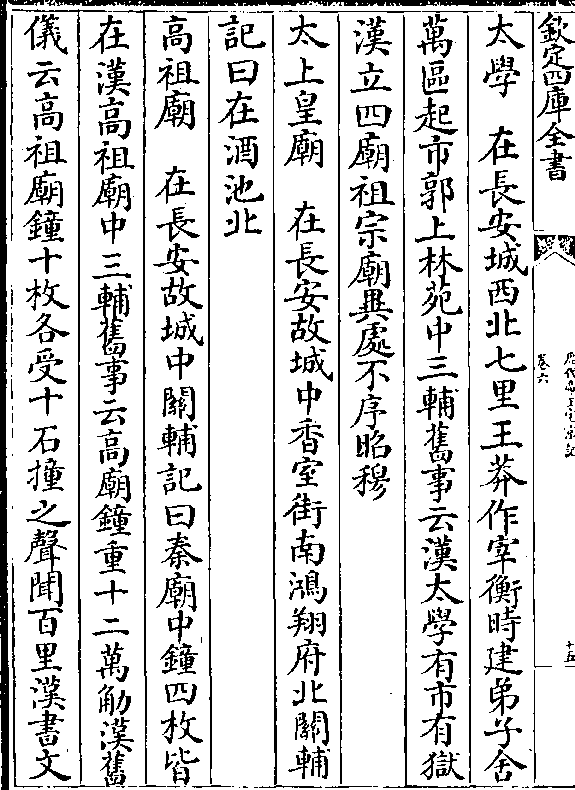 欽定四庫全書
歷代帝王宅京記
卷六
十五
太學　在長安城西北七里王莽作宰衡時建弟子舍
萬區起市郭上林苑中三輔舊事云漢太學有市有獄
漢立四廟祖宗廟異處不序昭穆
太上皇廟　在長安故城中香室街南鴻翔府北關輔
記曰在酒池北
高祖廟　在長安故城中關輔記曰秦廟中鐘四枚皆
在漢高祖廟中三輔舊事云高廟鐘重十二萬觔漢舊
儀云高祖廟鐘十枚各受十石撞之聲聞百里漢書文